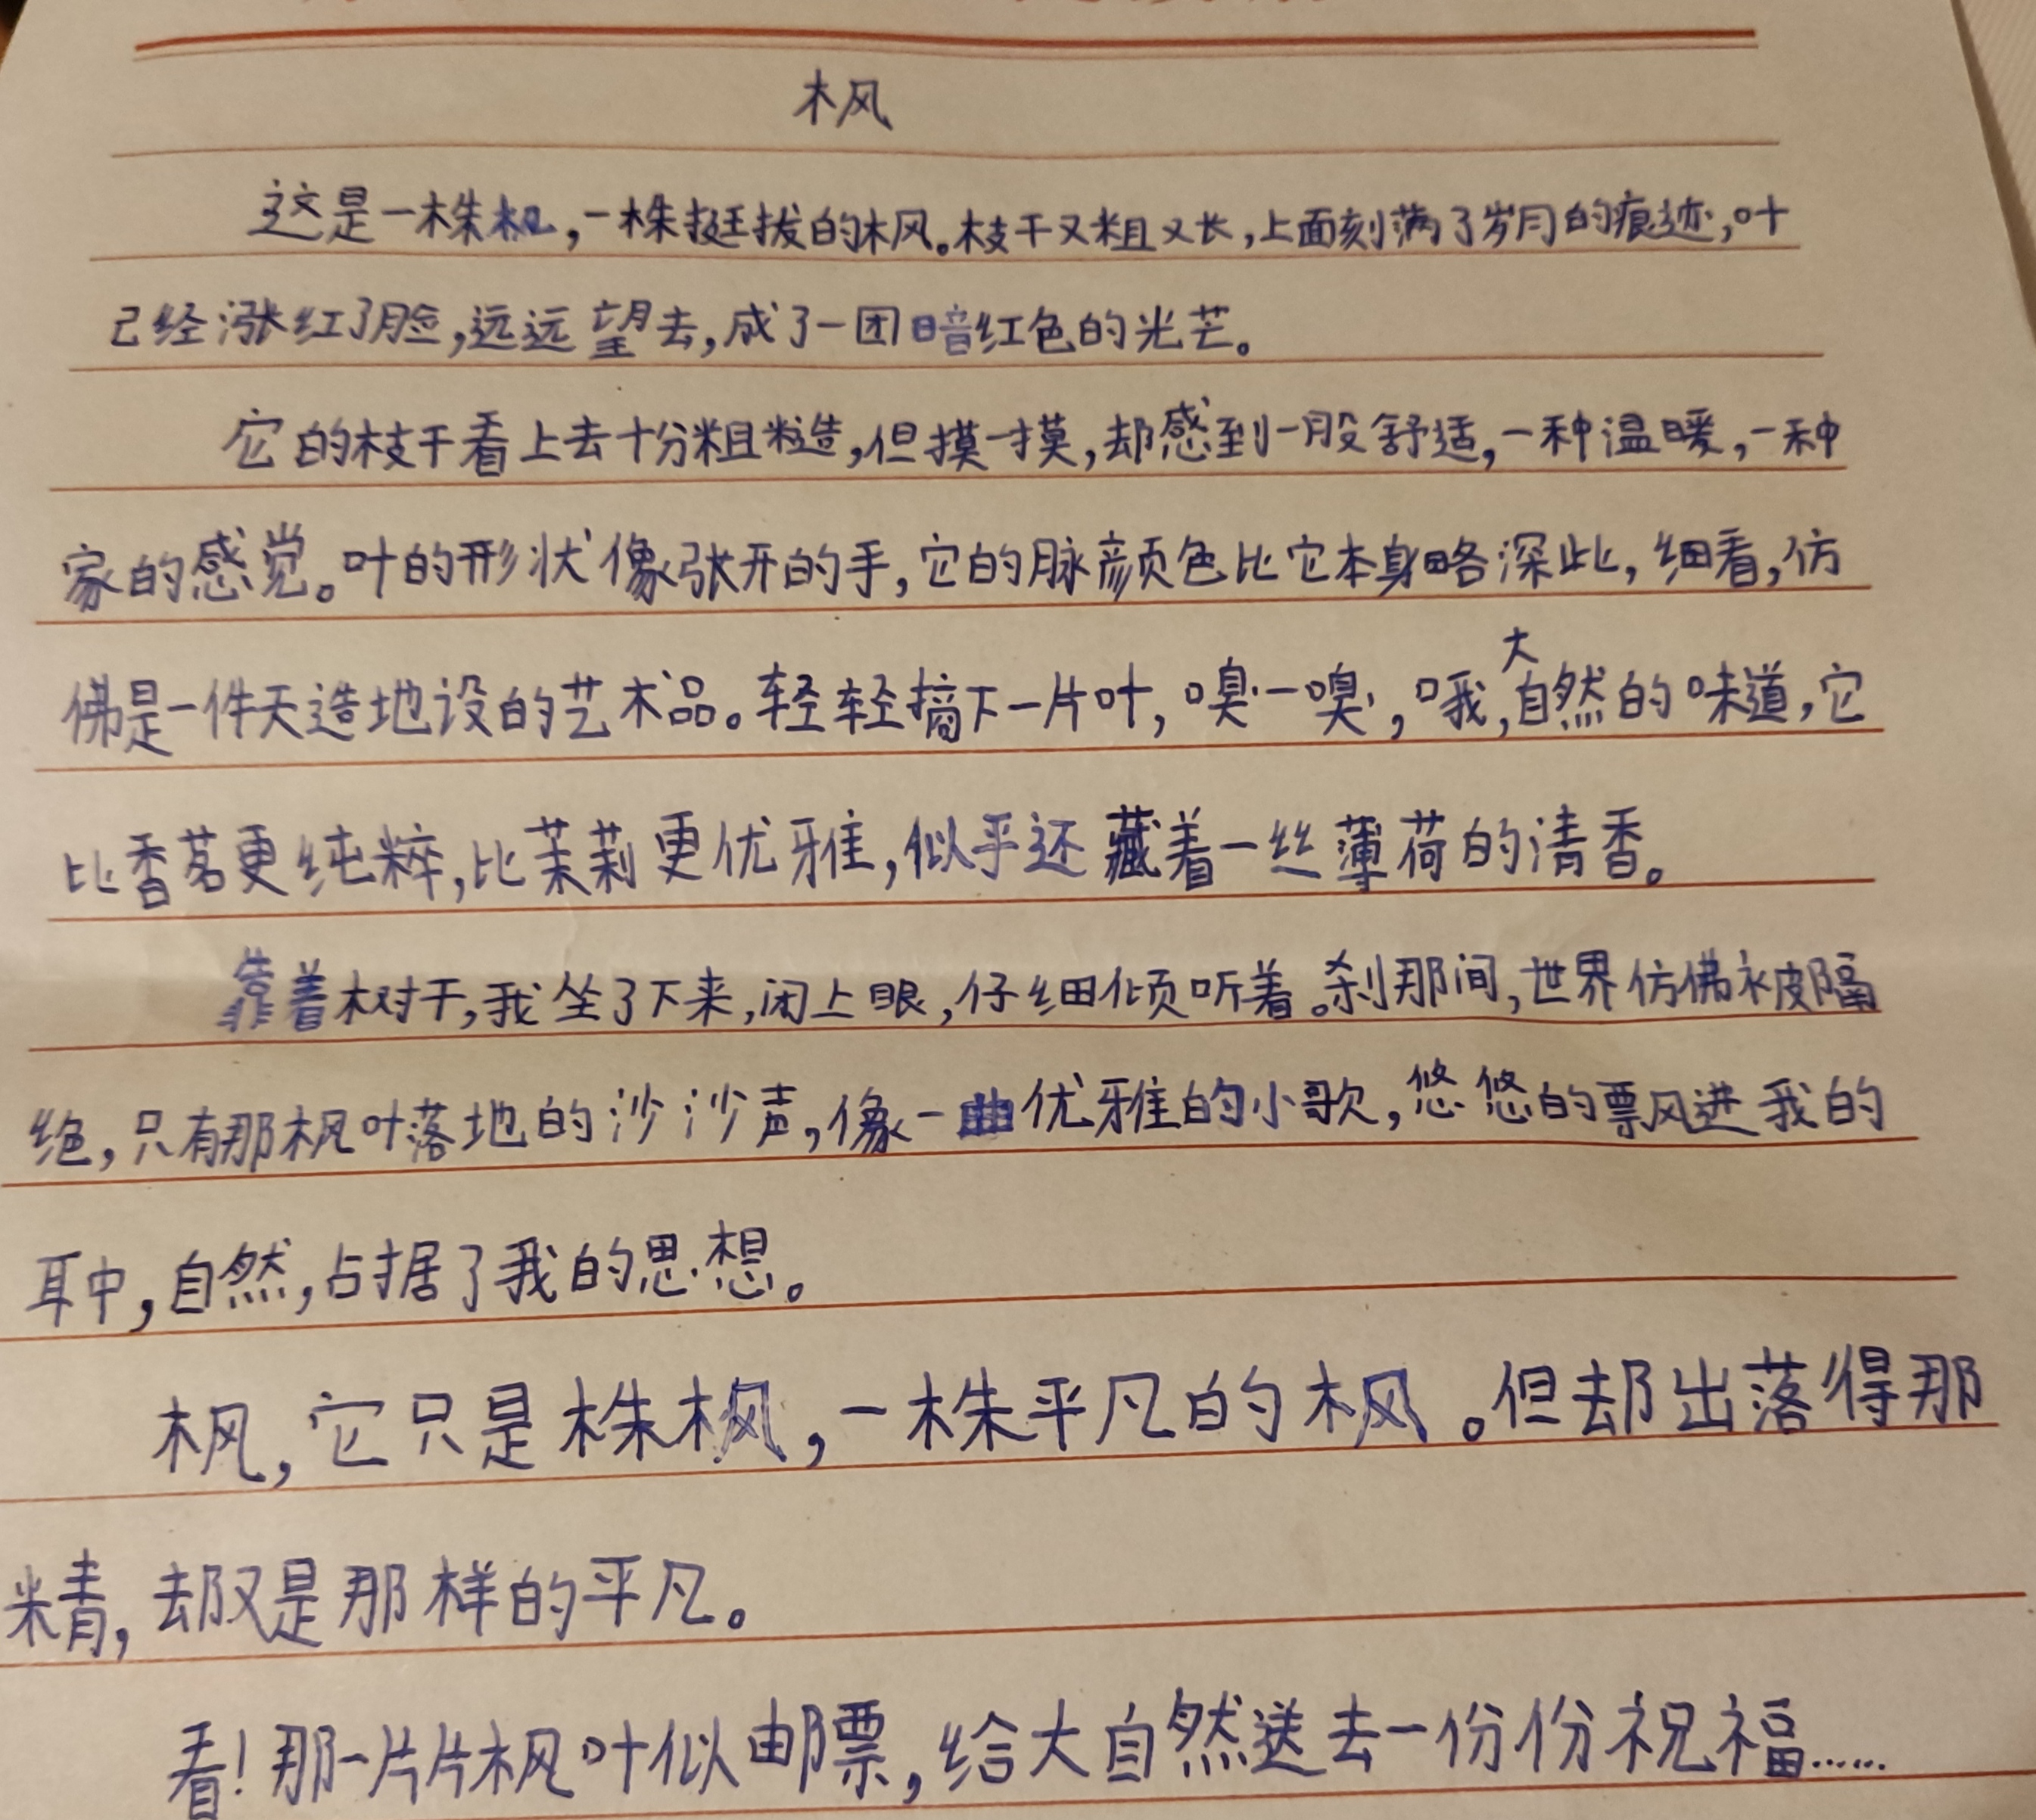 枫
这是一株枫，一株挺拔的枫。枝干又粗又长，上面刻满了岁月的痕迹，叶
已经涨红了脸，远远望去，成了一团暗红色的光芒。
它的枝干看上去十分粗糙，但摸一摸，却感到一股舒适，一种温暖，一种
家的感觉。叶的形状像张开的手，它的脉颜色比它本身略深些，细看，仿
佛是一件天造地设的艺术品。轻轻摘下一片叶，嗅一嗅，哦，大自然的味道，它
比香茗更纯粹，比茉莉更优雅，似乎还藏着一丝薄荷的清香。
靠着树干，我坐了下来，闭上眼，仔细倾听着。刹那间，世界仿佛被隔
绝，只有那枫叶落地的沙沙声，像一曲优雅的小歌，悠悠的飘进我的
耳中，自然，占据了我的思想。
枫，它只是株枫，一株平凡的枫。但却出落得那
精，却又是那样的平凡。
看！那一片片枫叶似邮票，给大自然送去一份份祝福……